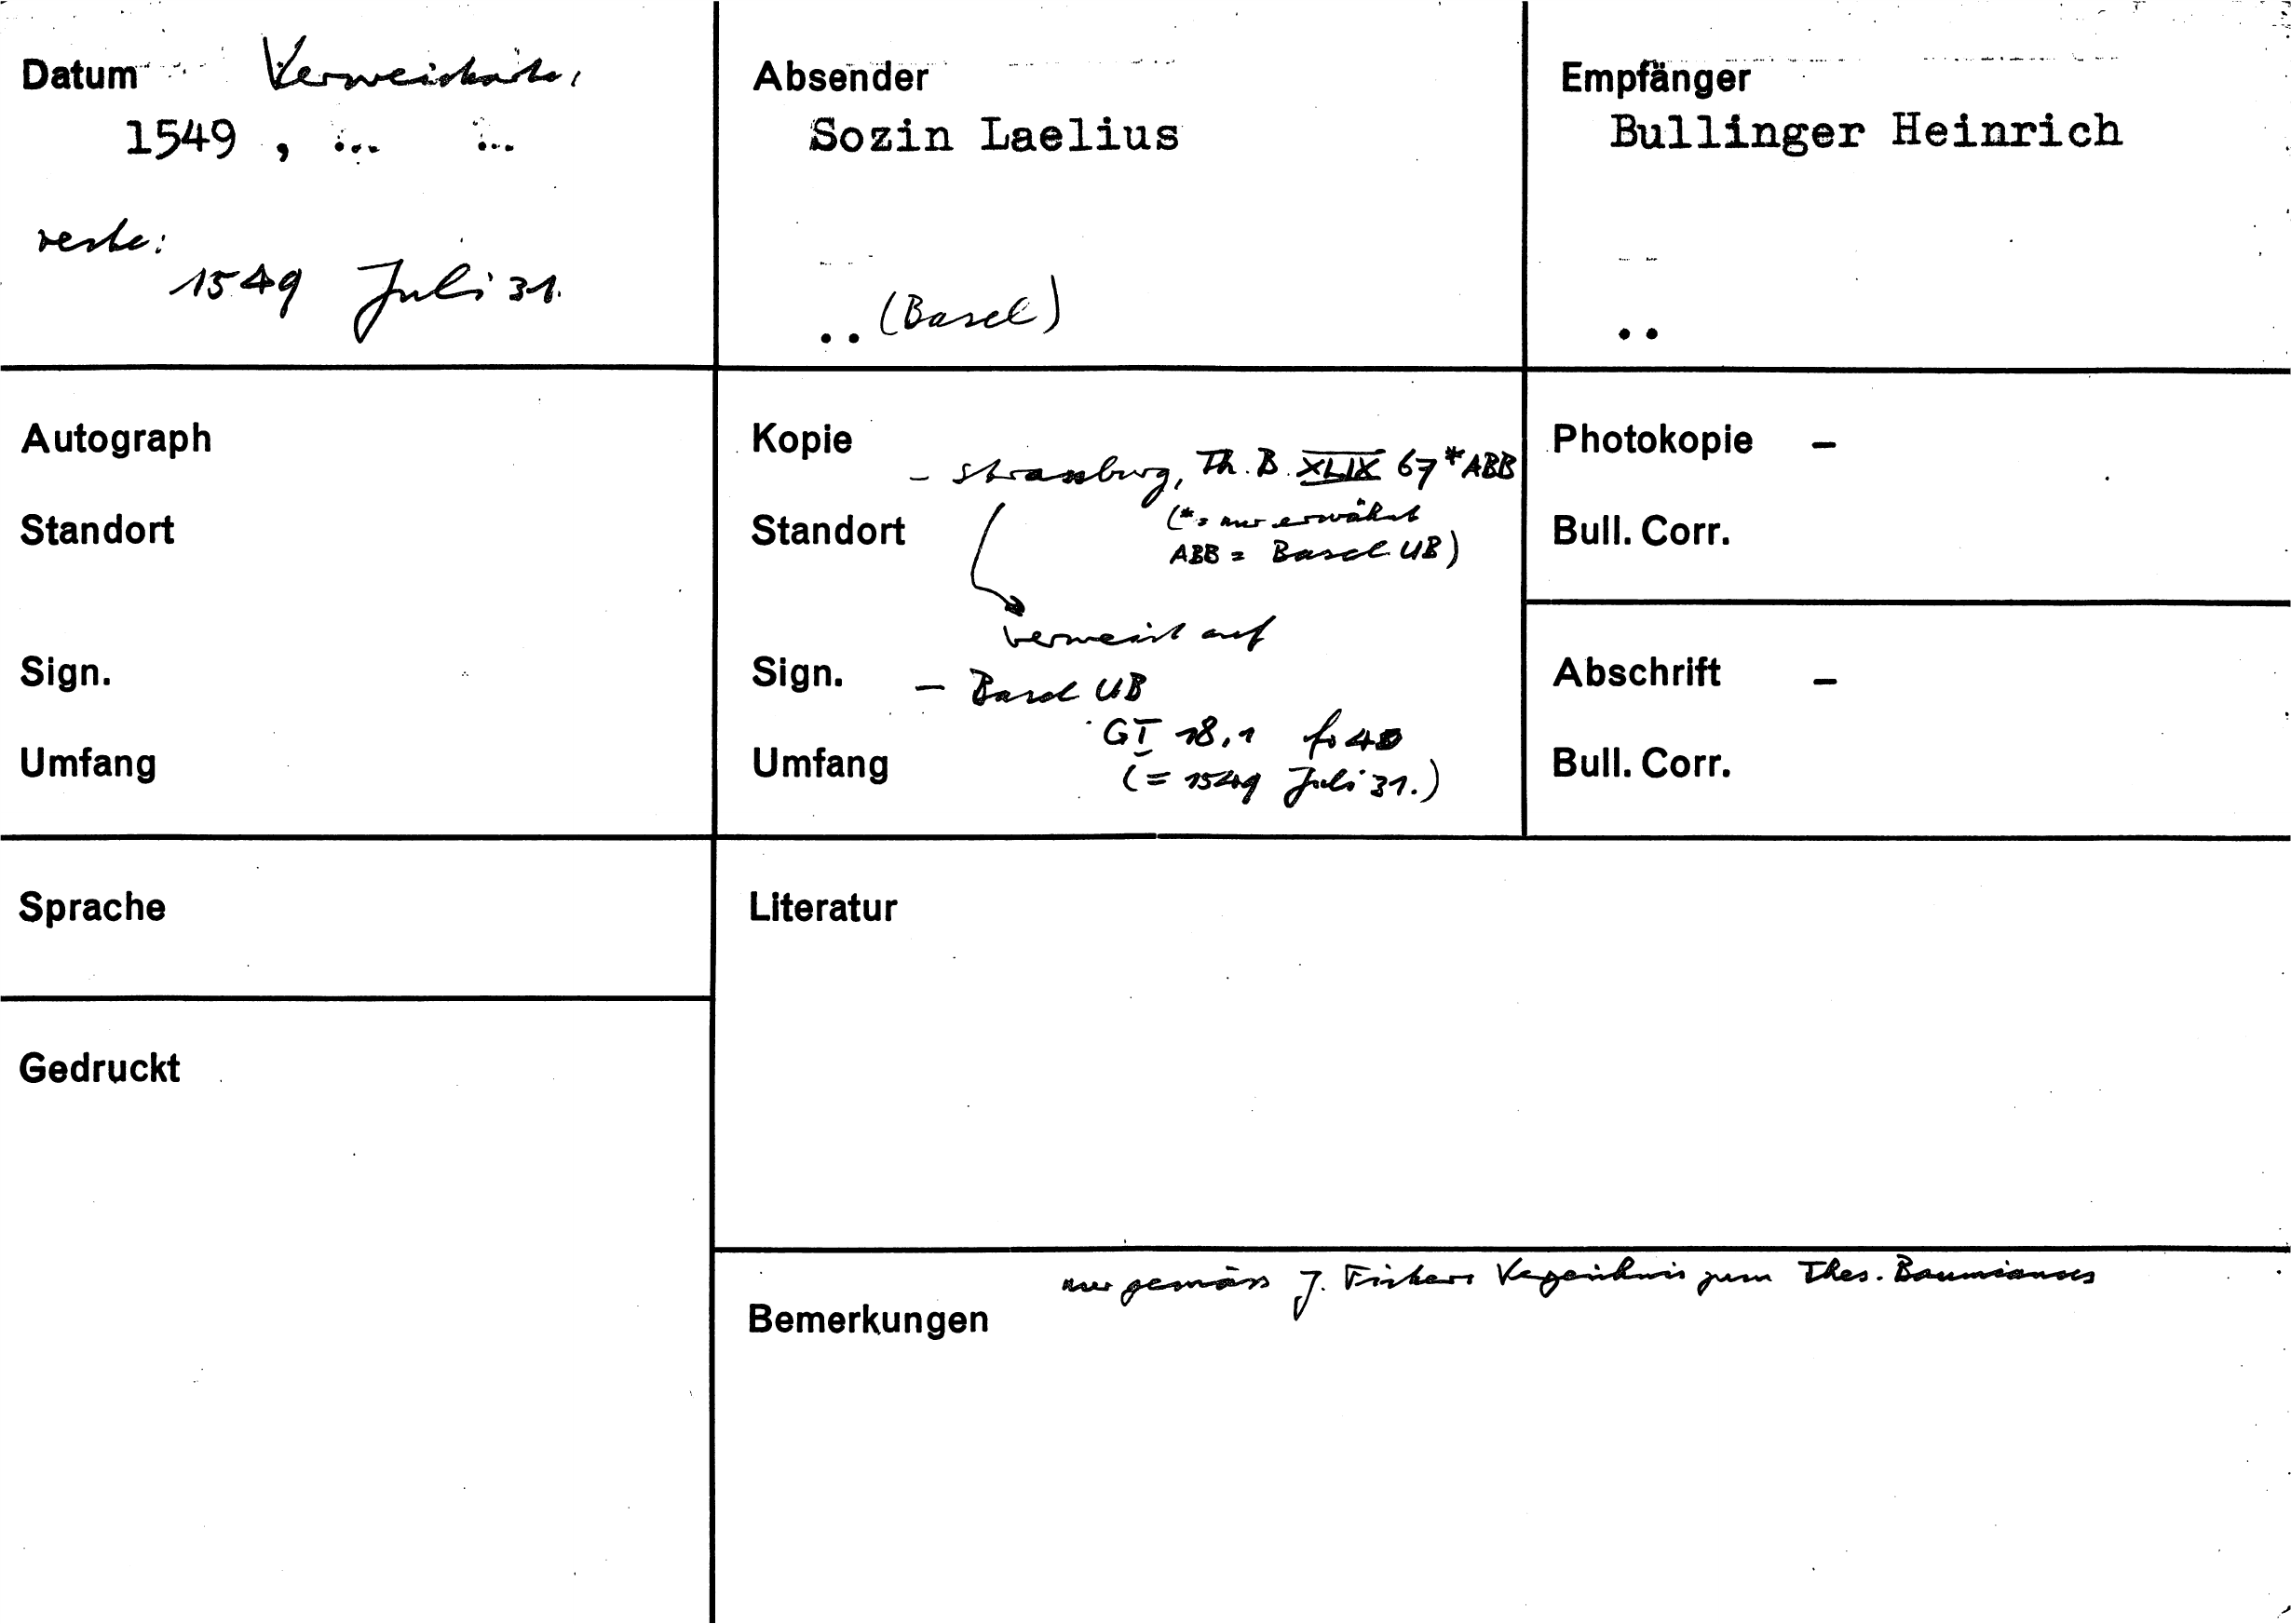 Datum Verweiskarte,
1549 , ... ...
recte:
1549 Juli 31.
Absender
Sozin Laelius
.. (Basel)
Empfänger
Bullinger Heinrich
..
Autograph
Standort
Sign.
Umfang
Kopie
- Strassburg, Th. B. XLIX 67 * ABB
Standort
(* = nur erwähnt
ABB = Basel UB)
verweist auf
Sign. - Basel UB
G I 18,1 fo
Umfang
(= 1549 Juli 31.)
Photokopie -
Bull. Corr.
Abschrift -
Bull. Corr.
Sprache
Gedruckt
Literatur
nur gemäss J. Fickers Verzeichnis zum Thes. Baumianus
Bemerkungen